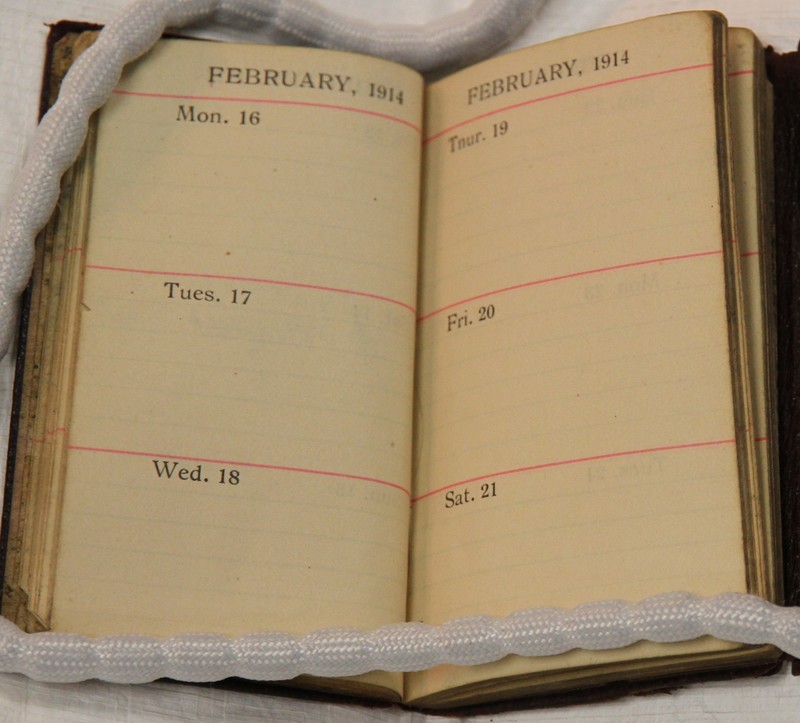 FEBRUARY, 1914
Mon. 16
Tues. 17
Wed. 18
FEBRUARY, 1914
Tnur. 19
Fri. 20
Sat. 21